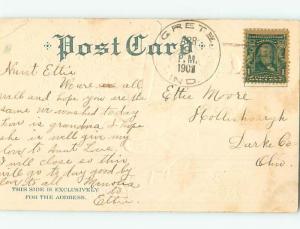 Post Card
GRETN
APR
P.M.
1907
IND.
Aunt Ettie
We are all
well and hope you are the
same we washed today
is grandma I hope
she is well give my
love to Aunt
I will close so this
will go to day good by
love to all
to
Ettie
THIS SIDE IS EXCLUSIVELY
FOR THE ADDRESS.
Ettie Moore
Hollansburgh
Darke Co
Ohio